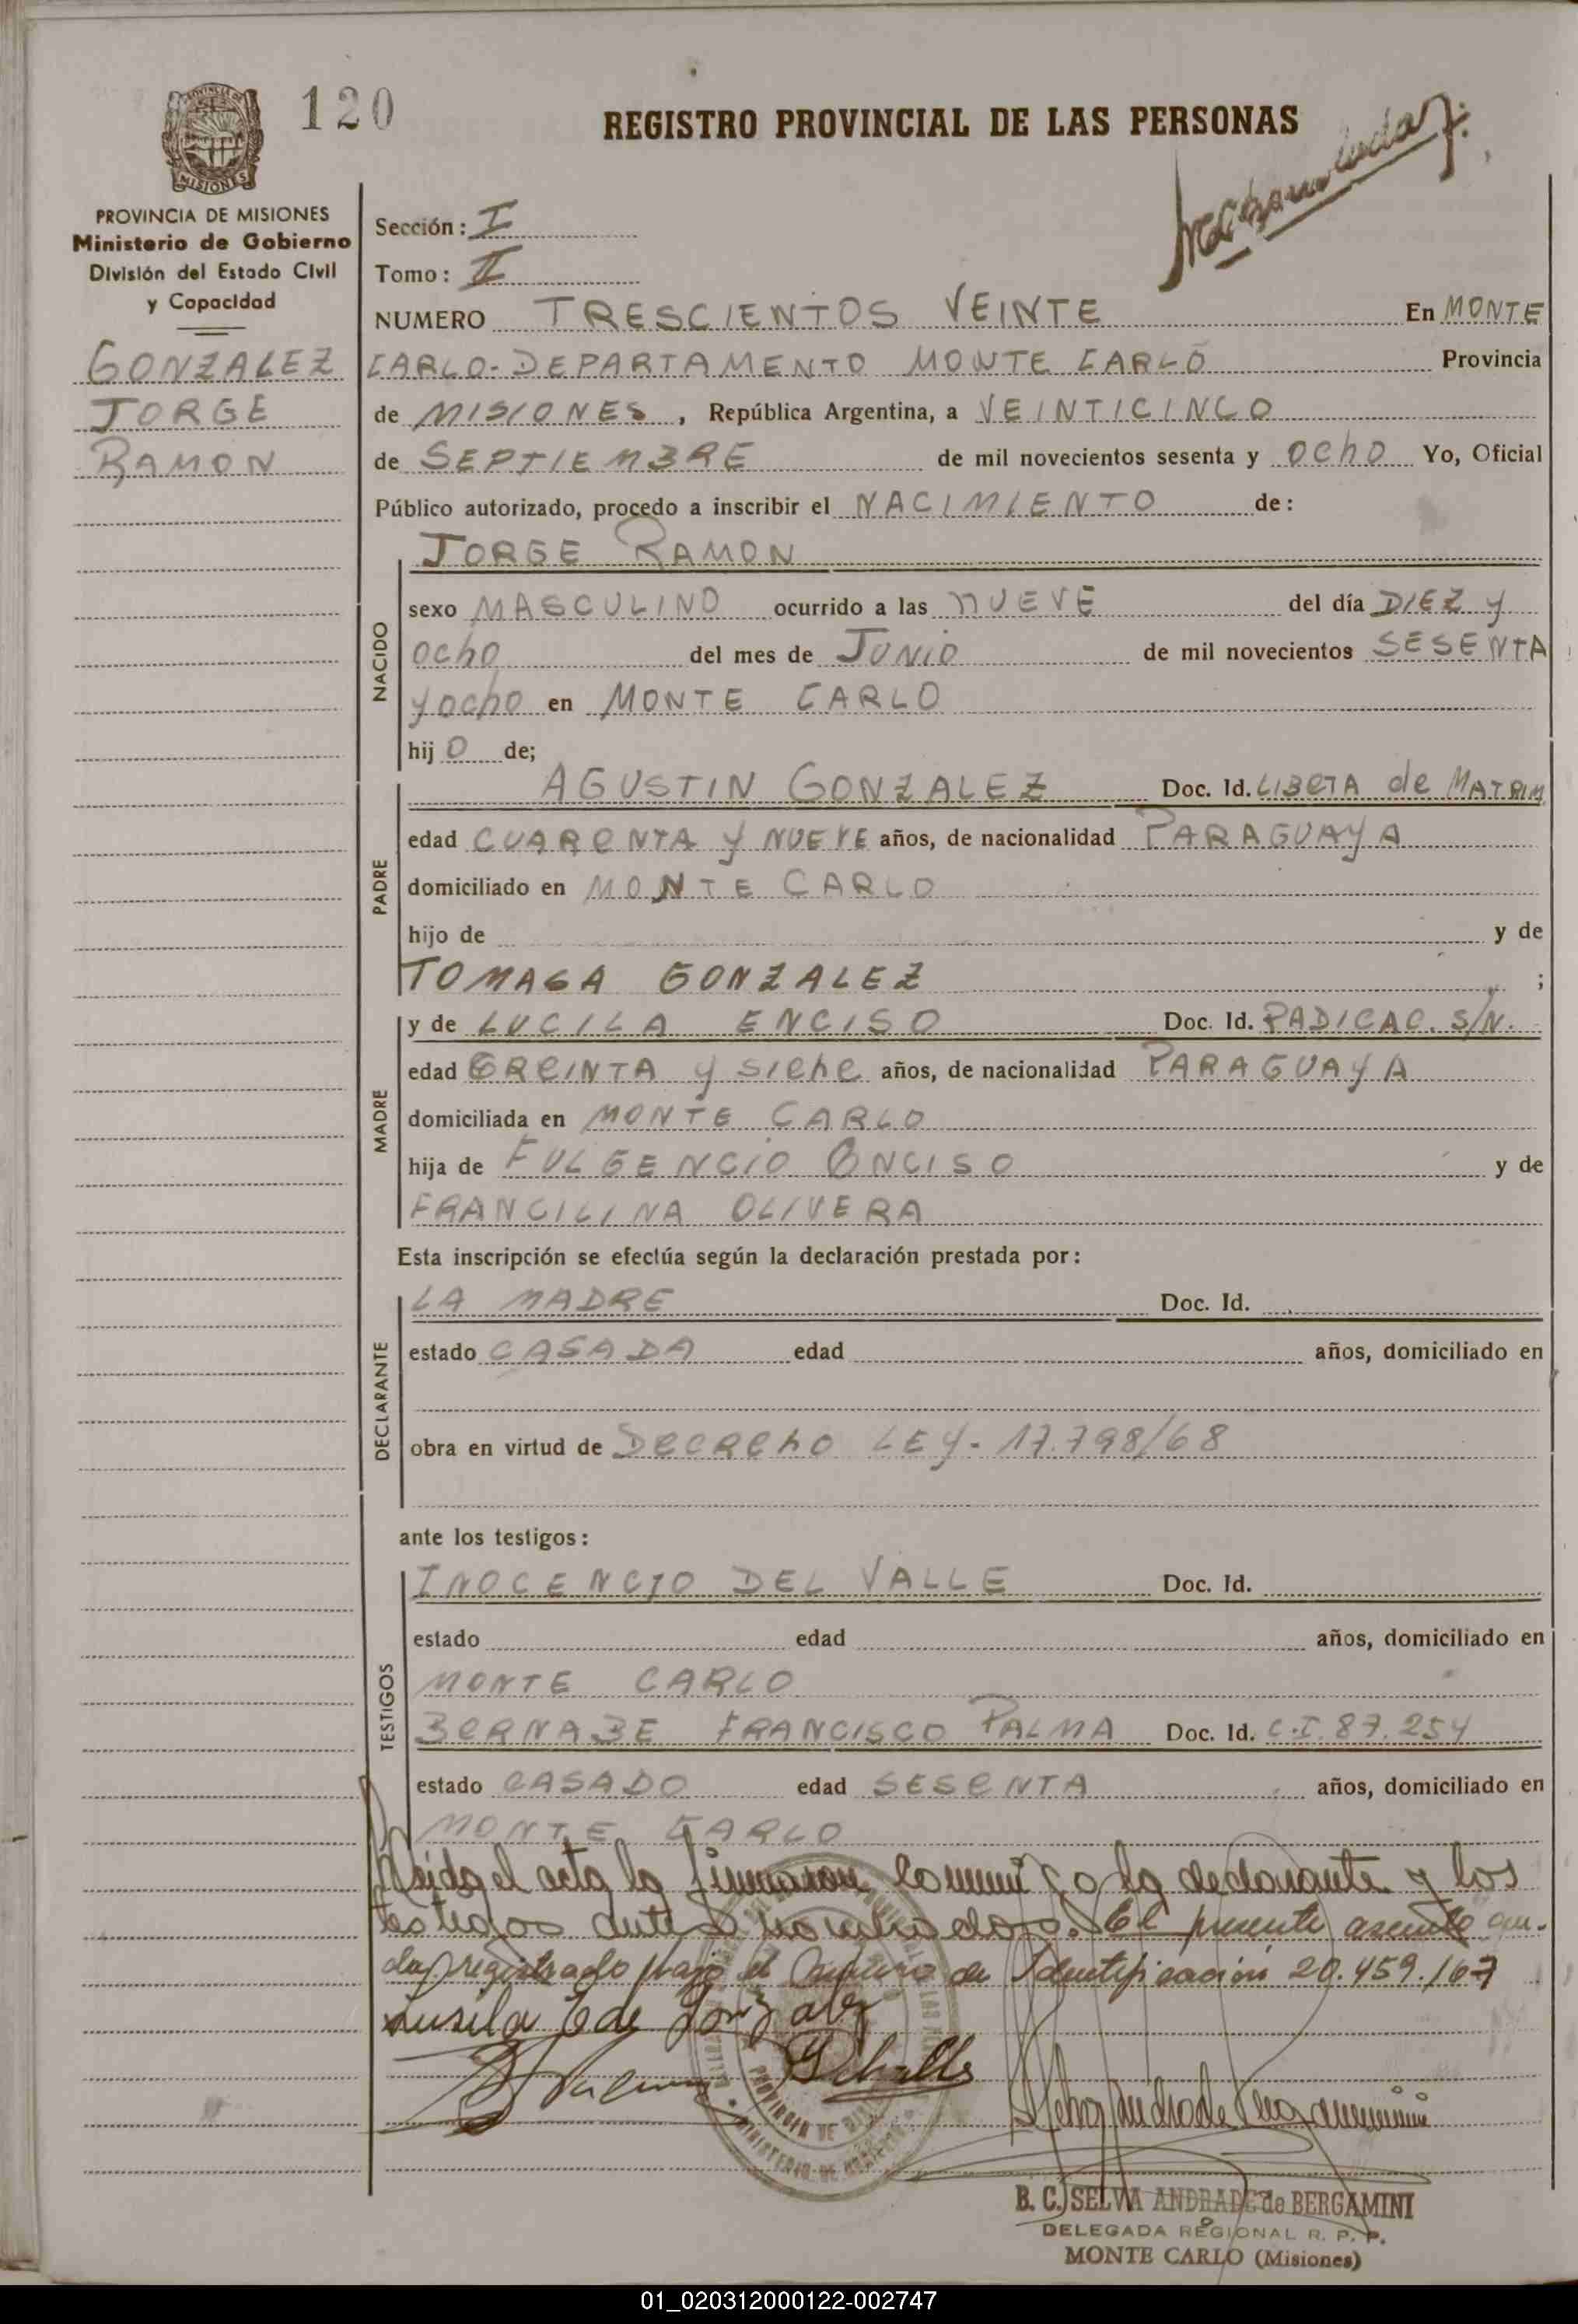 120
REGISTRO PROVINCIAL DE LAS PERSONAS
MISIONES
PROVINCIA DE MISIONES
Ministerio de Gobierno
División del Estado Civil
y Capacidad
GONZALEZ
JORGE
RAMON
Sección: I
Tomo: II
NUMERO TRESCIENTOS VEINTE En MONTE
CARLO-DEPARTAMENTO MONTE CARLO Provincia
de MISIONES, República Argentina, a VEINTICINCO
de SEPTIEMBRE de mil novecientos sesenta y ocho Yo, Oficial
Público autorizado, procedo a inscribir el NACIMIENTO de:
JORGE RAMON
NACIDO
sexo MASCULINO ocurrido a las NUEVE del día DIEZ y
ocho del mes de JUNIO de mil novecientos SESENTA
y ocho en MONTE CARLO
hij O de;
PADRE
AGUSTIN GONZALEZ Doc. Id. LIBETA de MATRIM
edad CUARENTA y NUEVE años, de nacionalidad PARAGUAYA
domiciliado en MONTE CARLO
hijo de y de
TOMASA GONZALEZ ;
MADRE
y de LUCILA ENCISO Doc. Id. RADICAC. S/N.
edad TREINTA y siete años, de nacionalidad PARAGUAYA
domiciliada en MONTE CARLO
hija de FULGENCIO ENCISO y de
FRANCILINA OLIVERA
Esta inscripción se efectúa según la declaración prestada por:
DECLARANTE
LA MADRE Doc. Id.
estado CASADA edad años, domiciliado en
obra en virtud de DECRETO LEY- 17.798/68
ante los testigos:
TESTIGOS
INOCENCIO DEL VALLE Doc. Id.
estado edad años, domiciliado en
MONTE CARLO
BERNABE FRANCISCO PALMA Doc. Id. C.I. 87.254
estado CASADO edad SESENTA años, domiciliado en
MONTE CARLO
Leida el acta la firmaron conmigo la declarante y los
testigos antes nombrados. El presente asiento que-
da registrado bajo el Número de Identificación 20.459.167
Lusila E de Gonzalez
B. C. SELVA ANDRADE de BERGAMINI
DELEGADA REGIONAL R. P. P.
MONTE CARLO (Misiones)
01_020312000122-002747